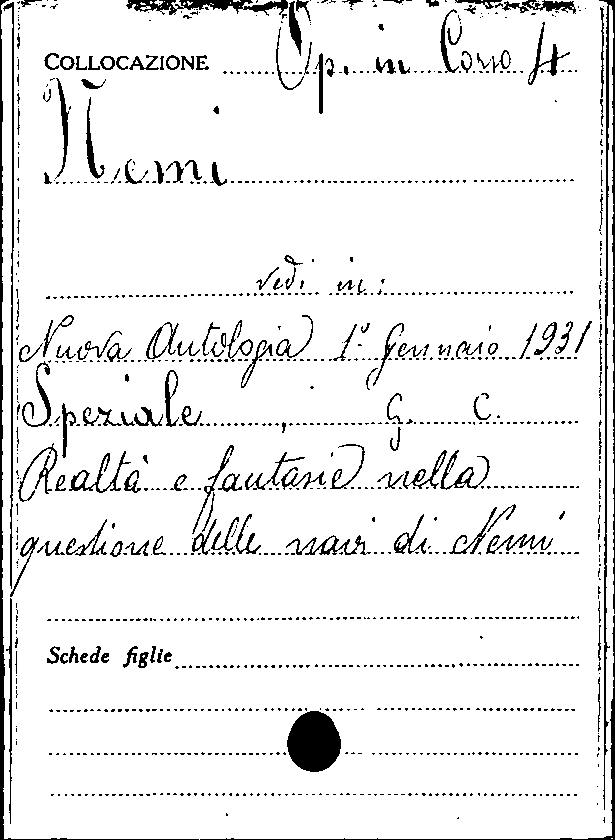 COLLOCAZIONE Op. in Corso 4
Nemi
vedi in:
Nuova Antologia 1° Gennaio 1931
Speziale, G. C.
Realtà e fantasie nella
questione delle navi di Nemi
Schede figlie